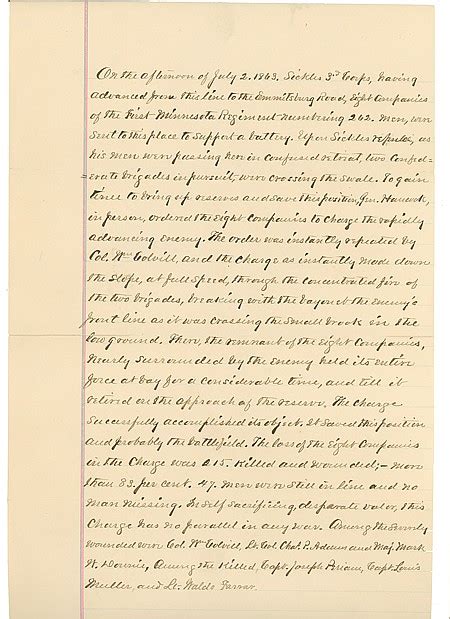 On the afternoon of July 2. 1863. Sickles 3rd Corps, having
advanced from this line to the Emmitsburg Road, Eight Companies
of the First Minnesota Regiment numbering 262. men, were
sent to this place to support a battery. Upon Sickles repulse, as
his men were passing here in confused retreat, two Confed-
erate brigades in pursuit, were crossing the swale. To gain
time to bring up reserves and save this position, Gen. Hancock,
in person, ordered the Eight Companies to Charge the rapidly
advancing Enemy. The order was instantly repeated by
Col. Wm Colvill, and the Charge as instantly made down
the slope, at full speed, through the concentrated fire of
the two brigades, breaking with the bayonet the Enemy's
front line as it was crossing the small brook in the
low ground. There, the remnant of the Eight Companies,
Nearly surrounded by the Enemy held its entire
force at bay for a considerable time, and till it
retired on the approach of the reserve. The Charge
successfully accomplished its object. It saved this position
and probably the battlefield. The loss of the Eight Companies
in the Charge was 215. Killed and wounded; - more
than 83. per cent. 47. men were still in line and no
man missing. In self sacrificing, desparate valor, this
Charge has no parallel in any war. Among the severely
wounded were Col. Wm Colvill, Lt. Col. Chas. P. Adams and Maj. Mark
W. Downie, Among the Killed, Capt. Joseph Periam, Capt. Louis
Muller, and Lt. Waldo Farrar.